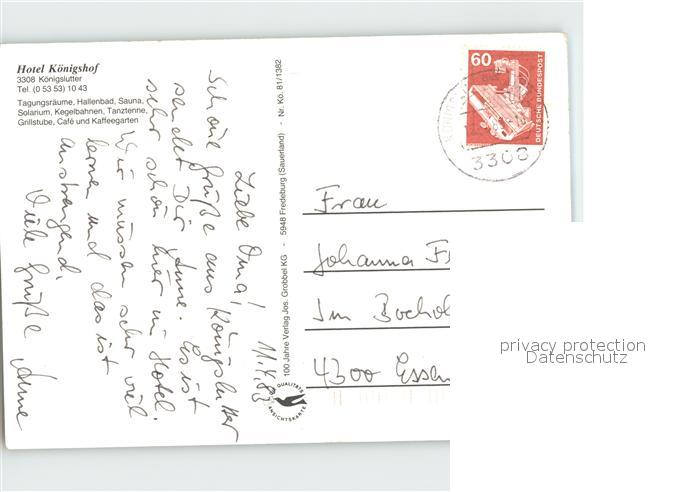 Hotel Königshof
3308 Königslutter
Tel. (0 53 53) 10 43
Tagungsräume, Hallenbad, Sauna,
Solarium, Kegelbahnen, Tanztenne,
Grillstube, Café und Kaffeegarten
11.4.83
Liebe Oma!
Schöne Grüße aus Königslutter
sendet Dir Anne. Es ist
sehr schön hier im Hotel.
Wir müssen sehr viel
lernen und das ist
anstrengend.
Viele Grüße Anne
100 Jahre Verlag Jos. Grobbel KG - 5948 Fredeburg (Sauerland) - Nr. Kö. 81/1382
QUALITÄTS
ANSICHTSKARTE
60
DEUTSCHE BUNDESPOST
3308
Frau
Johanna
Im
4300 Essen
privacy protection
Datenschutz